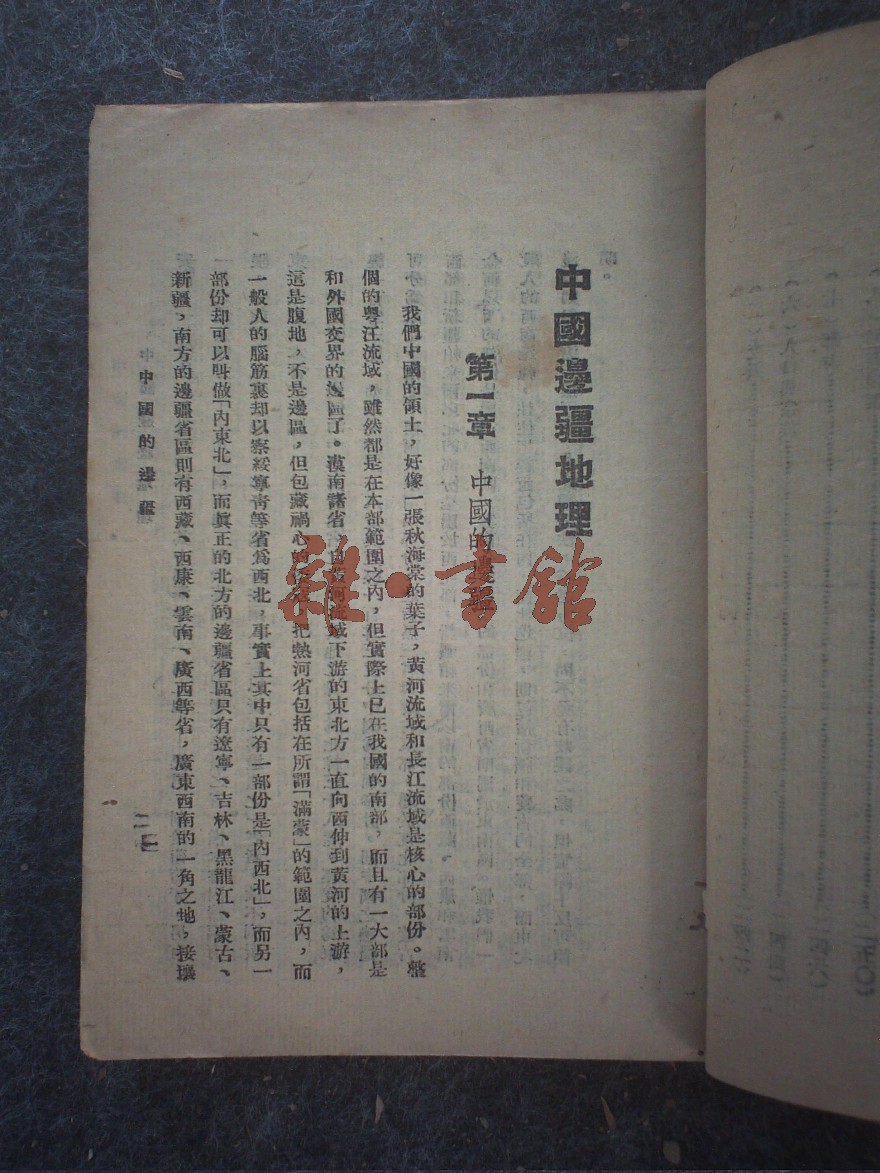 中國邊疆地理
第一章　中國的邊疆
我們中國的領土，好像一張秋海棠的葉子，黃河流域和長江流域是核心的部份。整
個的粵江流域，雖然都是在本部範圍之內，但實際上已在我國的南部，而且有一大部是
和外國交界的邊區了。漠南諸省，自黃河流域下游的東北方一直向西伸到黃河的上游，
這是腹地，不是邊區，但包藏禍心的　把熱河省包括在所謂「滿蒙」的範圍之內，而
一般人的腦筋裏却以察綏寧青等省爲西北，事實上其中只有一部份是「內西北」，而另一
部份却可以叫做「內東北」，而眞正的北方的邊疆省區只有遼寧、吉林、黑龍江、蒙古、
新疆，南方的邊疆省區則有西藏、西康、雲南、廣西等省，廣東西南的一角之地，接壤
中國的邊疆
雜·書館